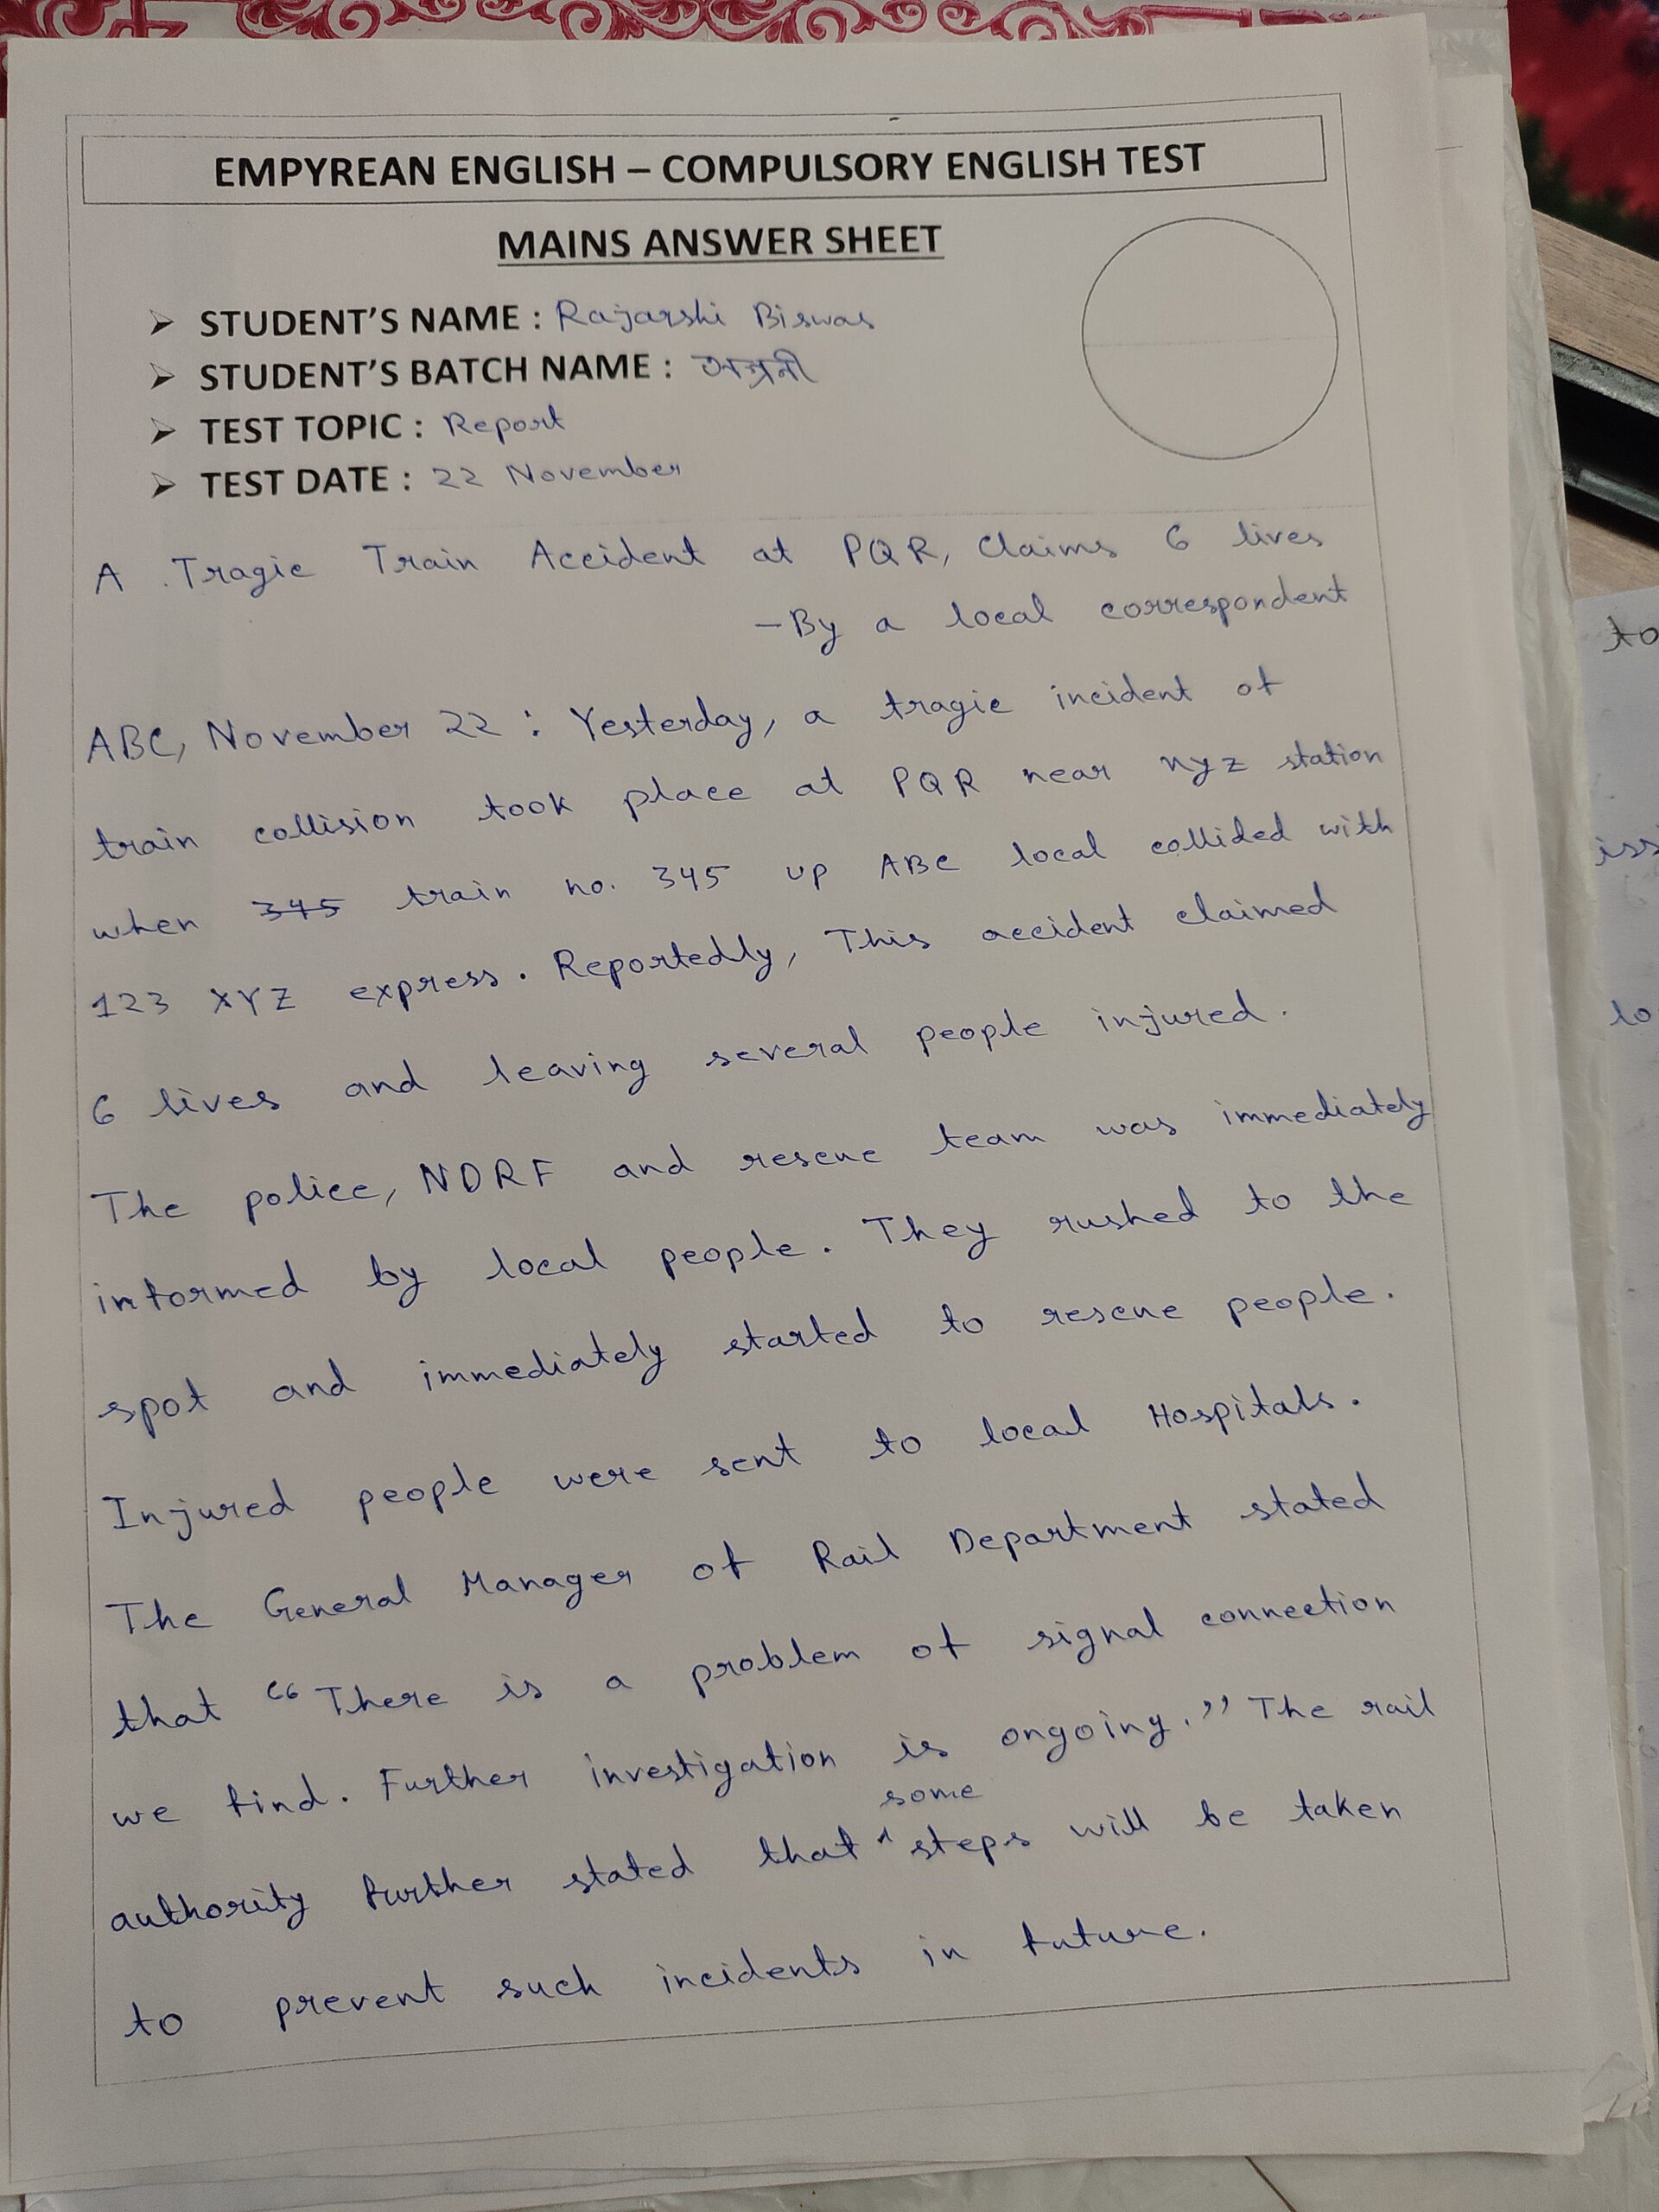 EMPYREAN ENGLISH – COMPULSORY ENGLISH TEST
MAINS ANSWER SHEET
➢ STUDENT'S NAME : Rajarshi Biswas
➢ STUDENT'S BATCH NAME :
➢ TEST TOPIC : Report
➢ TEST DATE : 22 November
A Tragic Train Accident at PQR, Claims 6 lives
– By a local correspondent
ABC, November 22 : Yesterday, a tragic incident of
train collision took place at PQR near xyz station
when 345 train no. 345 up ABC local collided with
123 XYZ express. Reportedly, This accident claimed
6 lives and leaving several people injured.
The police, NDRF and rescue team was immediately
informed by local people. They rushed to the
spot and immediately started to rescue people.
Injured people were sent to local Hospitals.
The General Manager of Rail Department stated
that "There is a problem of signal connection
we find. Further investigation is ongoing." The rail
some
authority further stated that ^ steps will be taken
to prevent such incidents in future.
to
iss
lo